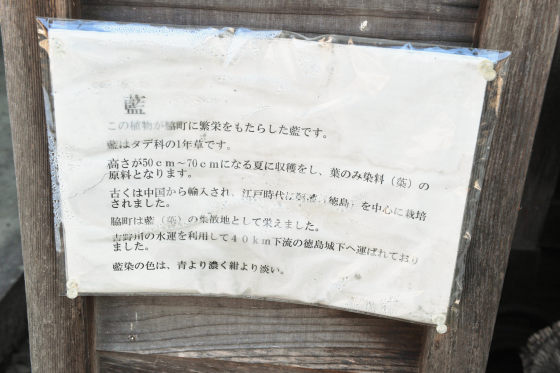 藍
この植物が脇町に繁栄をもたらした藍です。
藍はタデ科の1年草です。
高さが50cm～70cmになる夏に収穫をし、葉のみ染料（蒅）の
原料となります。
古くは中国から輸入され、江戸時代は阿波（徳島）を中心に栽培
されました。
脇町は藍（蒅）の集散地として栄えました。
吉野川の水運を利用して40km下流の徳島城下へ運ばれており
ました。
藍染の色は、青より濃く紺より淡い。